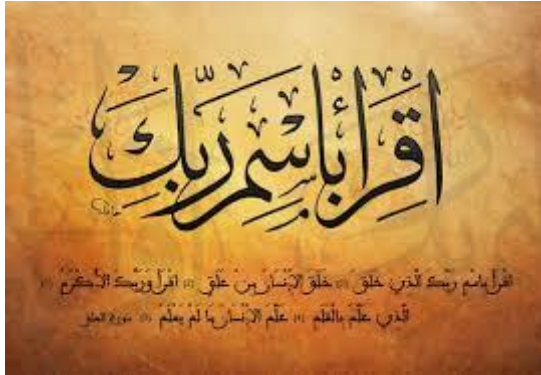 اقرأ باسم ربك
اقرأ باسم ربك الذي خلق (١) خلق الإنسان من علق (٢) اقرأ وربك الأكرم (٣)
الذي علم بالقلم (٤) علم الإنسان ما لم يعلم (٥) سورة العلق